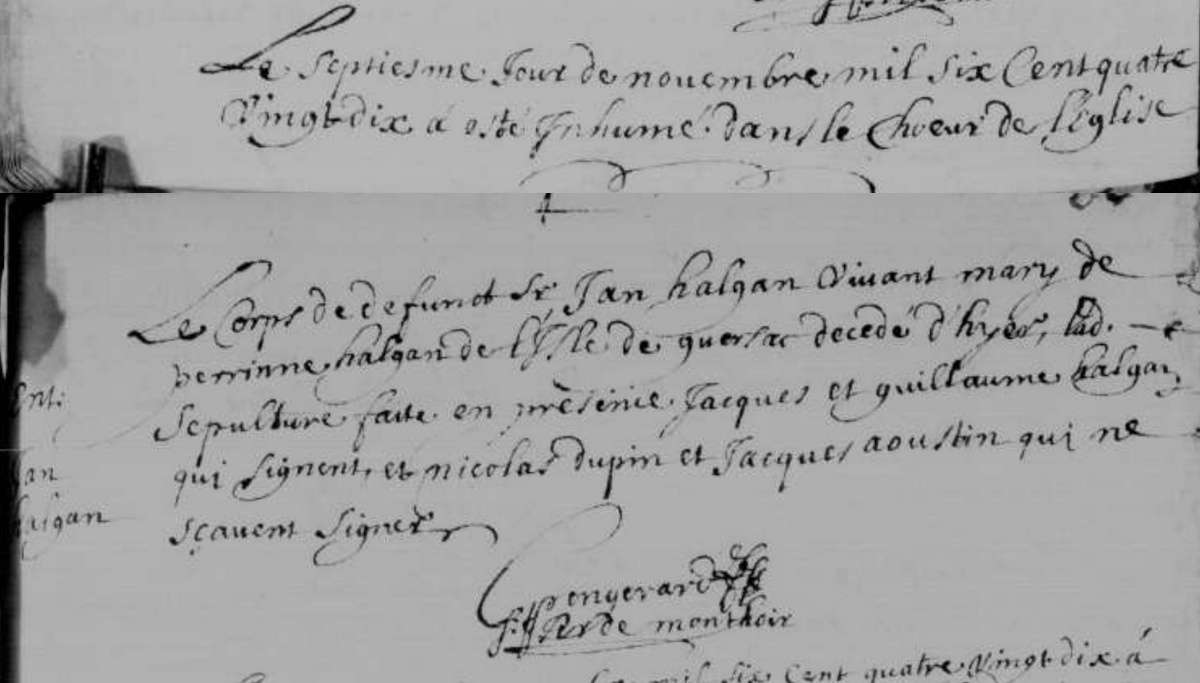 Le Septiesme Jour de novembre mil six Cent quatre
Vingt dix á esté Jnhumé dans le Choeur de l'Eglise
Le Corps de defunct Sr Jan halgan Vivant mary de
perrinne halgan de l'Jsle de quersac decedé d'hyer, lad.
Sepulture faite en presence Jacques et guillaume halgan
qui signent, et nicolas dupin et Jacques aoustin qui ne
sçavent signer
an
halgan
de monthoir
mil six Cent quatre Vingt dix á